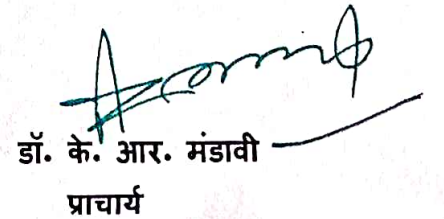 डॉ. के. आर. मंडावी
प्राचार्य